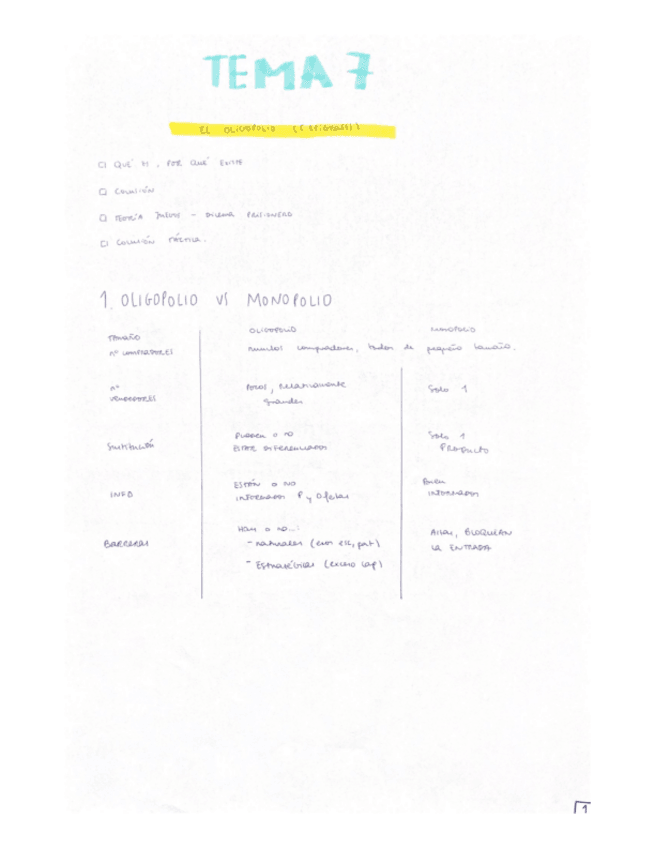 TEMA 7
EL OLIGOPOLIO
QUÉ ES, POR QUÉ EXISTE
COLUSIÓN
TEORÍA JUEGOS - DILEMA PRISIONERO
COLUSIÓN TÁCTICA.
1. OLIGOPOLIO VS MONOPOLIO
OLIGOPOLIO MONOPOLIO
TAMAÑO
nº COMPRADORES
muchos compradores, todos de pequeño tamaño.
nº
VENDEDORES
Pocos, relativamente
grandes
Solo 1
Sustitución
Pueden o no
ESTAR DIFERENCIADOS
Solo 1
PRODUCTO
INFO
ESTÁN o NO
INFORMADOS P y Ofertas
Bien
INFORMADOS
BARRERAS
Hay o no...:
- naturales (econ esc, pat)
- Estratégicas (exceso cap)
Altas, BLOQUEAN
LA ENTRADA
1